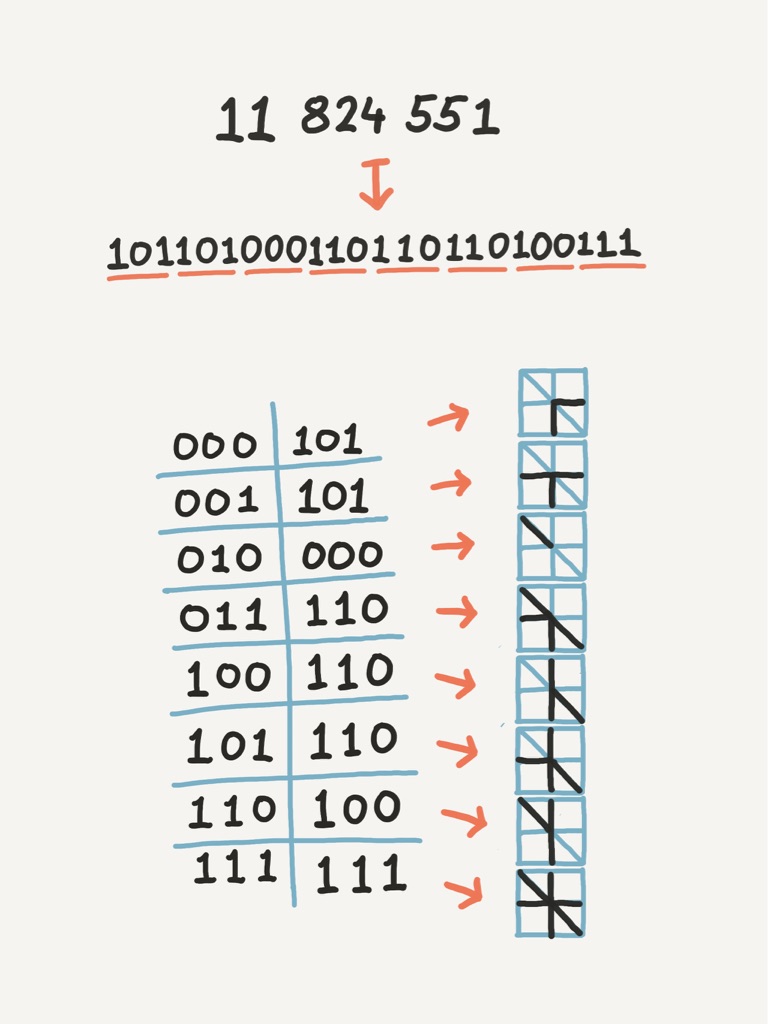 11 824 551
101101000110110110100111
000 101
001 101
010 000
011 110
100 110
101 110
110 100
111 111